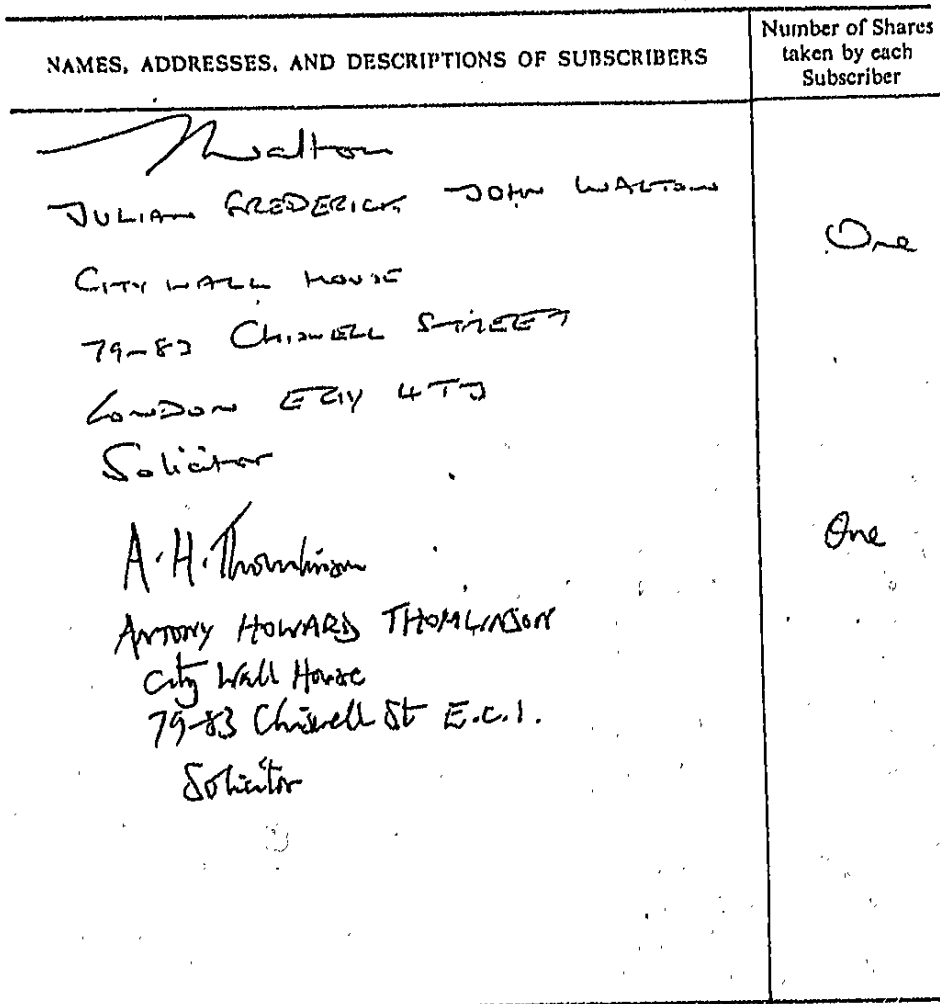 NAMES, ADDRESSES, AND DESCRIPTIONS OF SUBSCRIBERS
Number of Shares
taken by each
Subscriber
Walton
JULIAN FREDERICK JOHN WALTON
One
CITY WALL HOUSE
79-83 CHISWELL STREET
LONDON EC1Y 4TJ
Solicitor
A.H.Thomlinson
One
ANTONY HOWARD THOMLINSON
City Wall House
79-83 Chiswell St E.C.1.
Solicitor